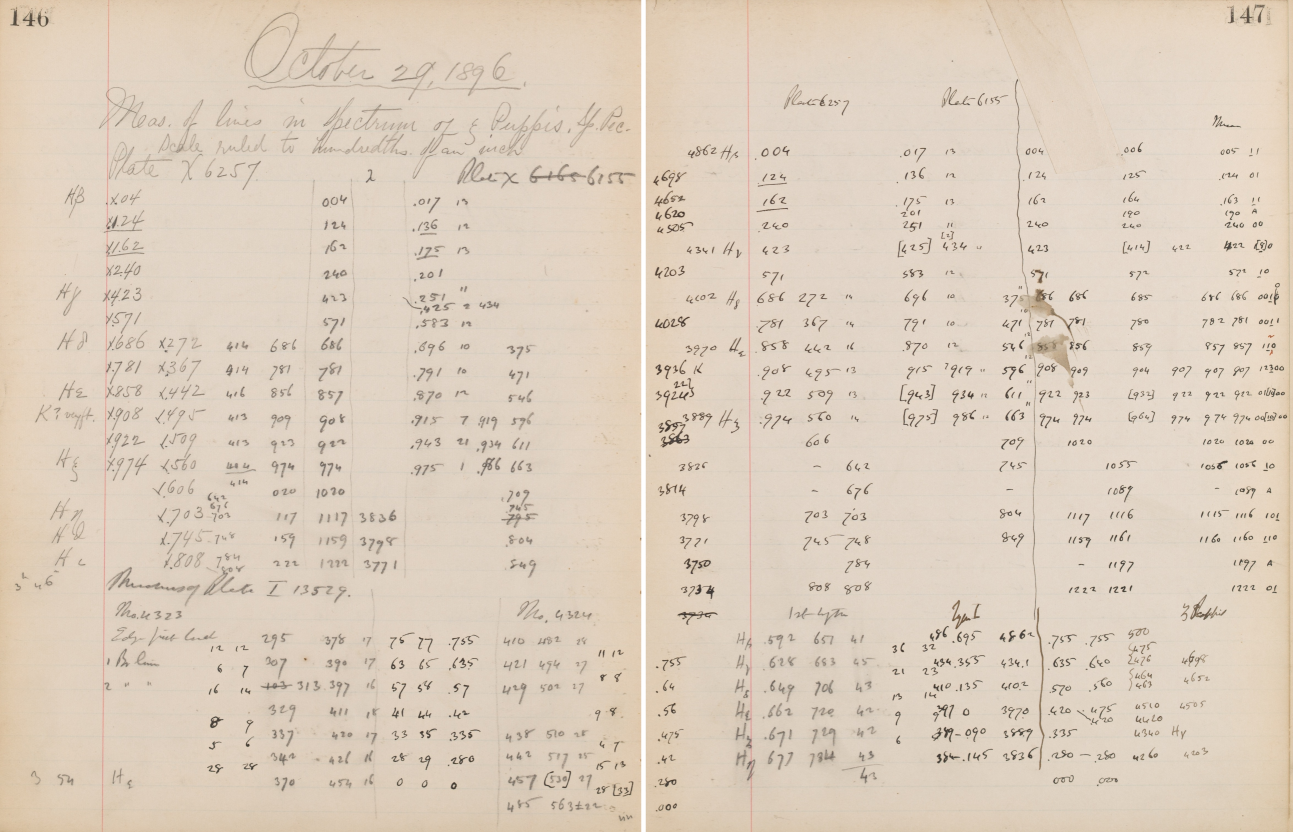 146
October 29, 1896.
Meas. of lines in Spectrum of ξ Puppis. Sp. Pec.
Scale ruled to hundredths of an inch
Plate X 6257 λ Plate X 6165 6155
Hβ .X04 004 .017 13
X.124 124 .136 12
X.162 162 .175 13
X.240 240 .201
Hγ X.423 423 .251 11
.425 2 434
X.571 571 .583 12
Hδ X.686 X.272 414 686 686 .696 10 375
X.781 X.367 414 781 781 .791 10 471
Hε X.858 X.442 416 856 857 .870 12 546
K? X.908 X.495 413 909 908 .915 7 919 596
X.922 X.509 413 923 922 .943 21 .934 611
Hζ X.974 X.560 414 974 974 .975 1 .986 663
414
X.606 642 020 1020 .709
676 745
Hη X.703 703 117 1117 3836 795
Hθ X.745 748 159 1159 3798 .804
784
Hι X.808 808 222 1222 3771 .849
Plate I 13529.
No. 4323 No. 4324
Edge first band 295 378 17 75 77 .755 410 482 28
12 12 11 12
1 Br line 307 390 17 63 65 .635 421 494 27
6 7 8 8
2 " " 103 313 397 16 57 58 .57 429 502 27
16 14 9 8
329 411 18 41 44 .42
8 9
337 420 17 33 35 .335 438 510 28
5 6 4 7
342 426 16 28 29 .280 442 517 25
28 28 15 13
3 54 Hs 370 454 16 0 0 0 457 [530] 27
28 [33]
485 563±22
147
Plate 6257 Plate 6155
Mean
4862 Hβ .004 .017 13 004 .006 005 11
4698 .124 .136 12 .124 125 .124 01
4652 162 .175 13 162 164 .163 11
4620 201 190 190 A
4505 .240 251 11 240 240 240 00
4341 Hγ 423 [425] 434 " 423 [414] 422 422 [8]0
4203 571 583 12 571 572 572 10
4102 Hδ 686 272 14 696 10 375 686 686 685 686 686 0010
4028 .781 367 14 791 10 471 781 781 780 782 781 0011
3970 Hε .858 442 16 .870 12 546 858 856 859 857 857 110
3936 K .908 495 13 915 ?919 " 596 908 909 904 907 907 907 12300
22]
3924 922 509 13 [943] 934 " 611 922 923 [932] 922 922 922
3889 Hζ .974 560 14 [975] 986 " 663 974 974 [964] 974 974 974
3857
3863 606 709 1020 1020 1020 00
3825 – 642 745 1055 1055 1056 10
3814 – 676 – 1089 – 1089 A
3798 703 703 804 1117 1116 1115 1116 101
3771 745 748 849 1159 1161 1160 1160 110
3750 784 – 1197 1197 A
3734 808 808 1222 1221 1222 01
3734 1st type
Hβ .592 651 41 486.695 4862 .755 .755 500
36 32 475
.755 Hγ .628 683 45 434.355 4341 .635 .640 476 4698
21 23 464
.64 Hδ .649 706 43 410.135 4102 .570 .560 463 4652
13 14
.56 Hε .662 720 42 397 0 3970 .420 – 475 4510 4505
9 9 420 4420
.475 Hζ .671 729 42 389-090 3889 .335 4340 Hγ
6
.42 Hη 677 734 43 384-.145 3836 .280 – .280 4260 4203
43
.280 000 .020
.000